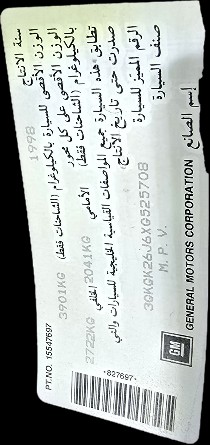 إسم الصانع GENERAL MOTORS CORPORATION GM
صنف السيارة M. P. V.
الرقم المميز للسيارة 3GKGK26J6XG525708
تطابق هذه السيارة جميع المواصفات القياسية الخليجية للسيارات والتي
صدرت حتى تاريخ الانتاج
الوزن الأقصى على كل محور الأمامي 2041KG الخلفي 2722KG
بالكيلوغرام (الشاحنات فقط)
الوزن الأقصى للسيارة بالكيلوغرام (الشاحنات فقط) 3901KG
سنة الانتاج 1998
PT.NO. 15547697
*827697*